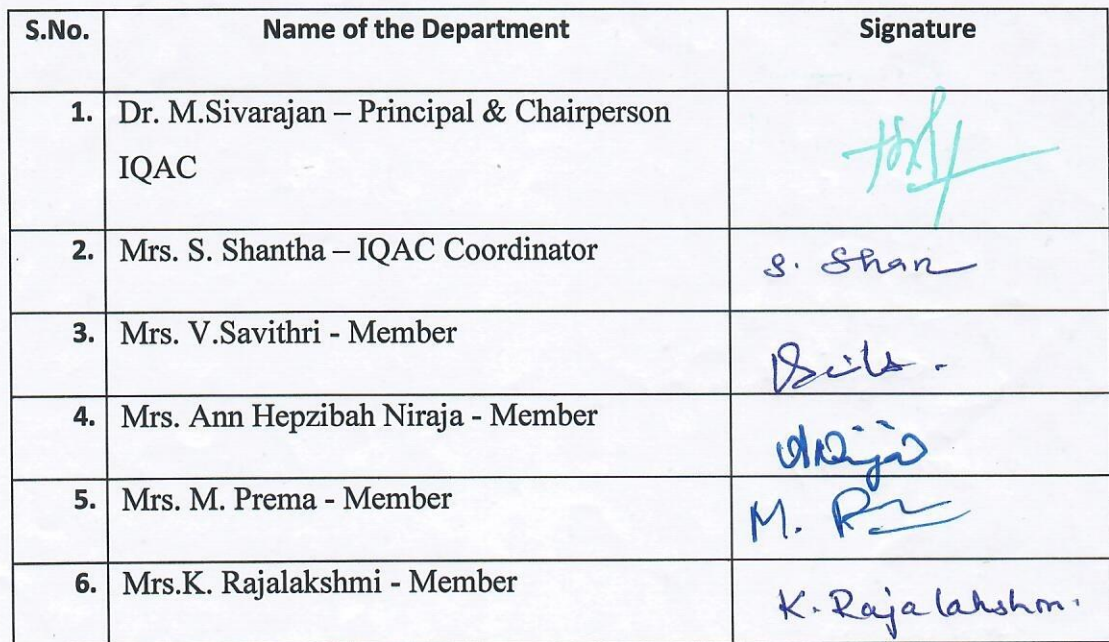 S.No. Name of the Department Signature
1. Dr. M.Sivarajan – Principal & Chairperson
IQAC
2. Mrs. S. Shantha – IQAC Coordinator S. Shan
3. Mrs. V.Savithri - Member
4. Mrs. Ann Hepzibah Niraja - Member
5. Mrs. M. Prema - Member M.
6. Mrs.K. Rajalakshmi - Member K. Rajalakshm.